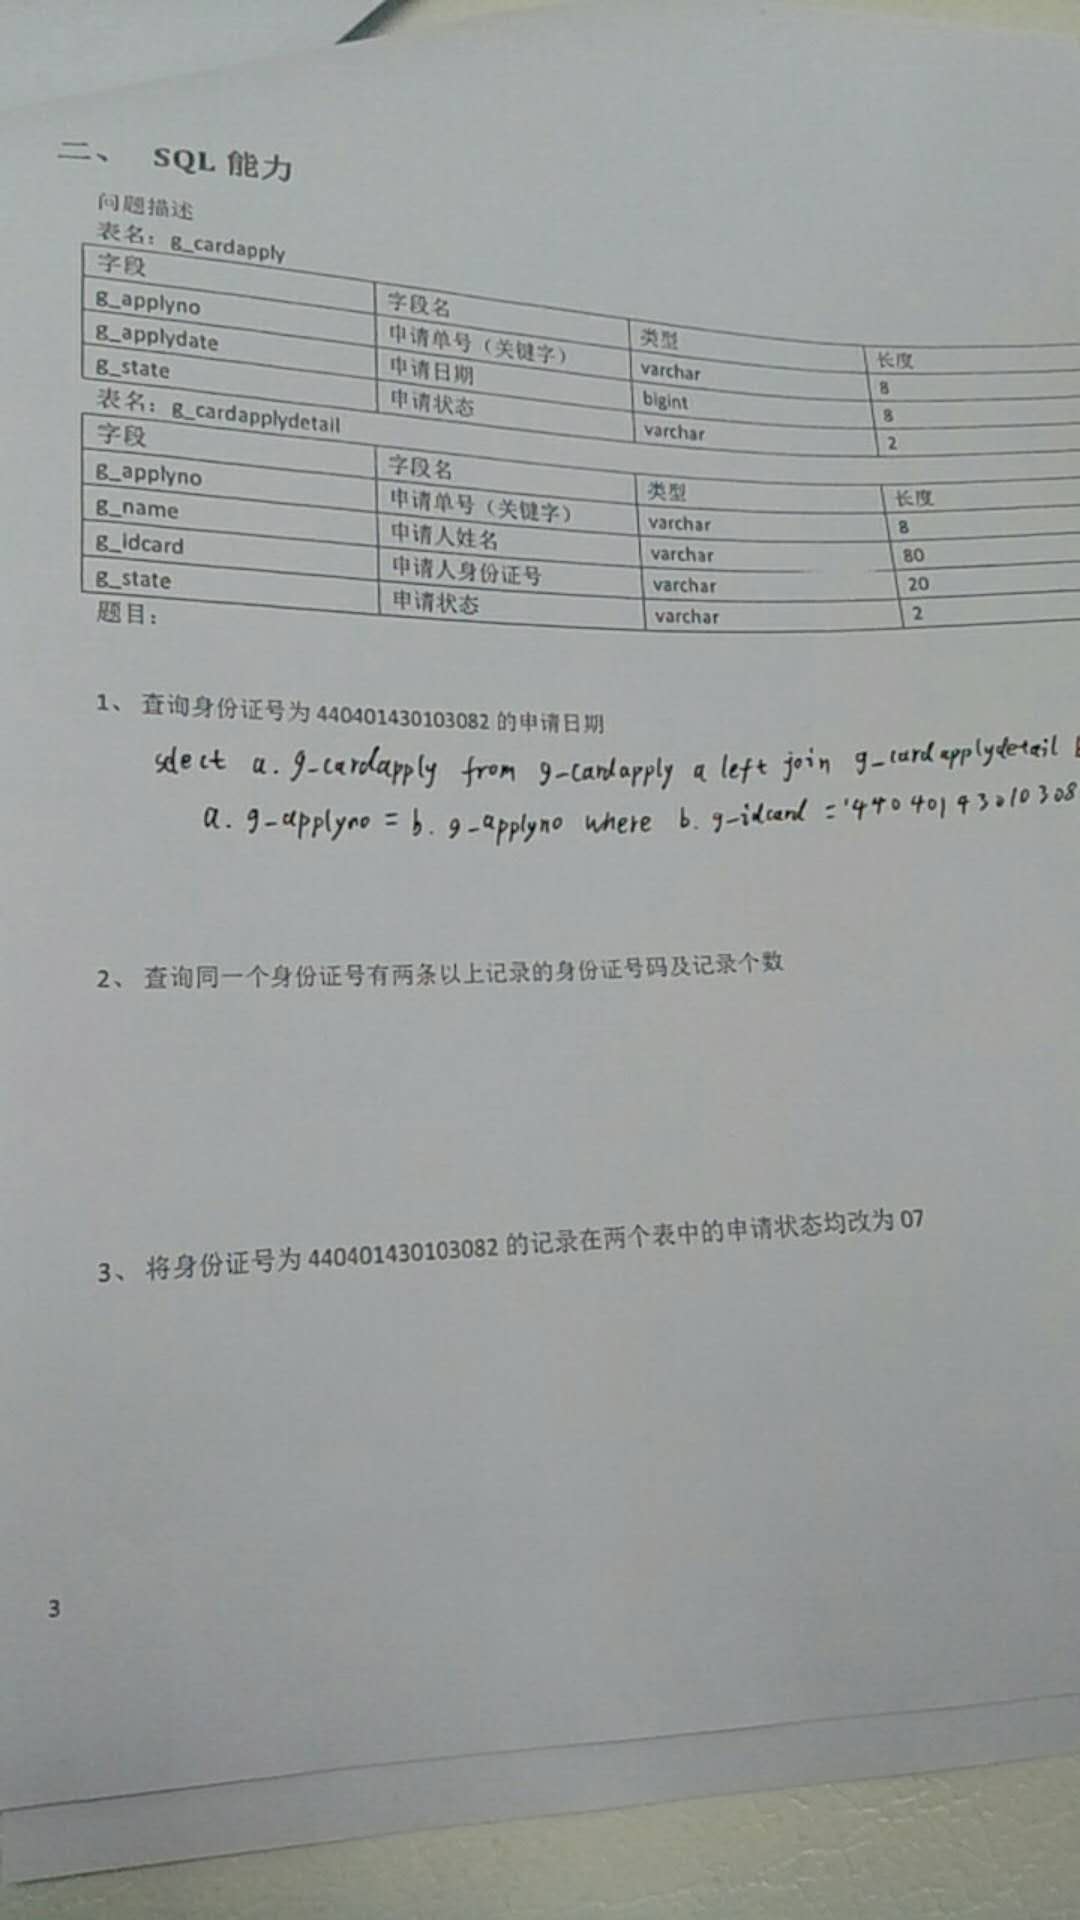 二、 SQL 能力
问题描述
表名：g_cardapply
字段 字段名 类型 长度
g_applyno 申请单号（关键字） varchar 8
g_applydate 申请日期 bigint 8
g_state 申请状态 varchar 2
表名：g_cardapplydetail
字段 字段名 类型 长度
g_applyno 申请单号（关键字） varchar 8
g_name 申请人姓名 varchar 80
g_idcard 申请人身份证号 varchar 20
g_state 申请状态 varchar 2
题目：
1、 查询身份证号为 440401430103082 的申请日期
select a. g-cardapply from g-cardapply a left join g-cardapplydetail
a. g-applyno = b. g-applyno where b. g-idcard = '44040143010308
2、 查询同一个身份证号有两条以上记录的身份证号码及记录个数
3、 将身份证号为 440401430103082 的记录在两个表中的申请状态均改为 07
3